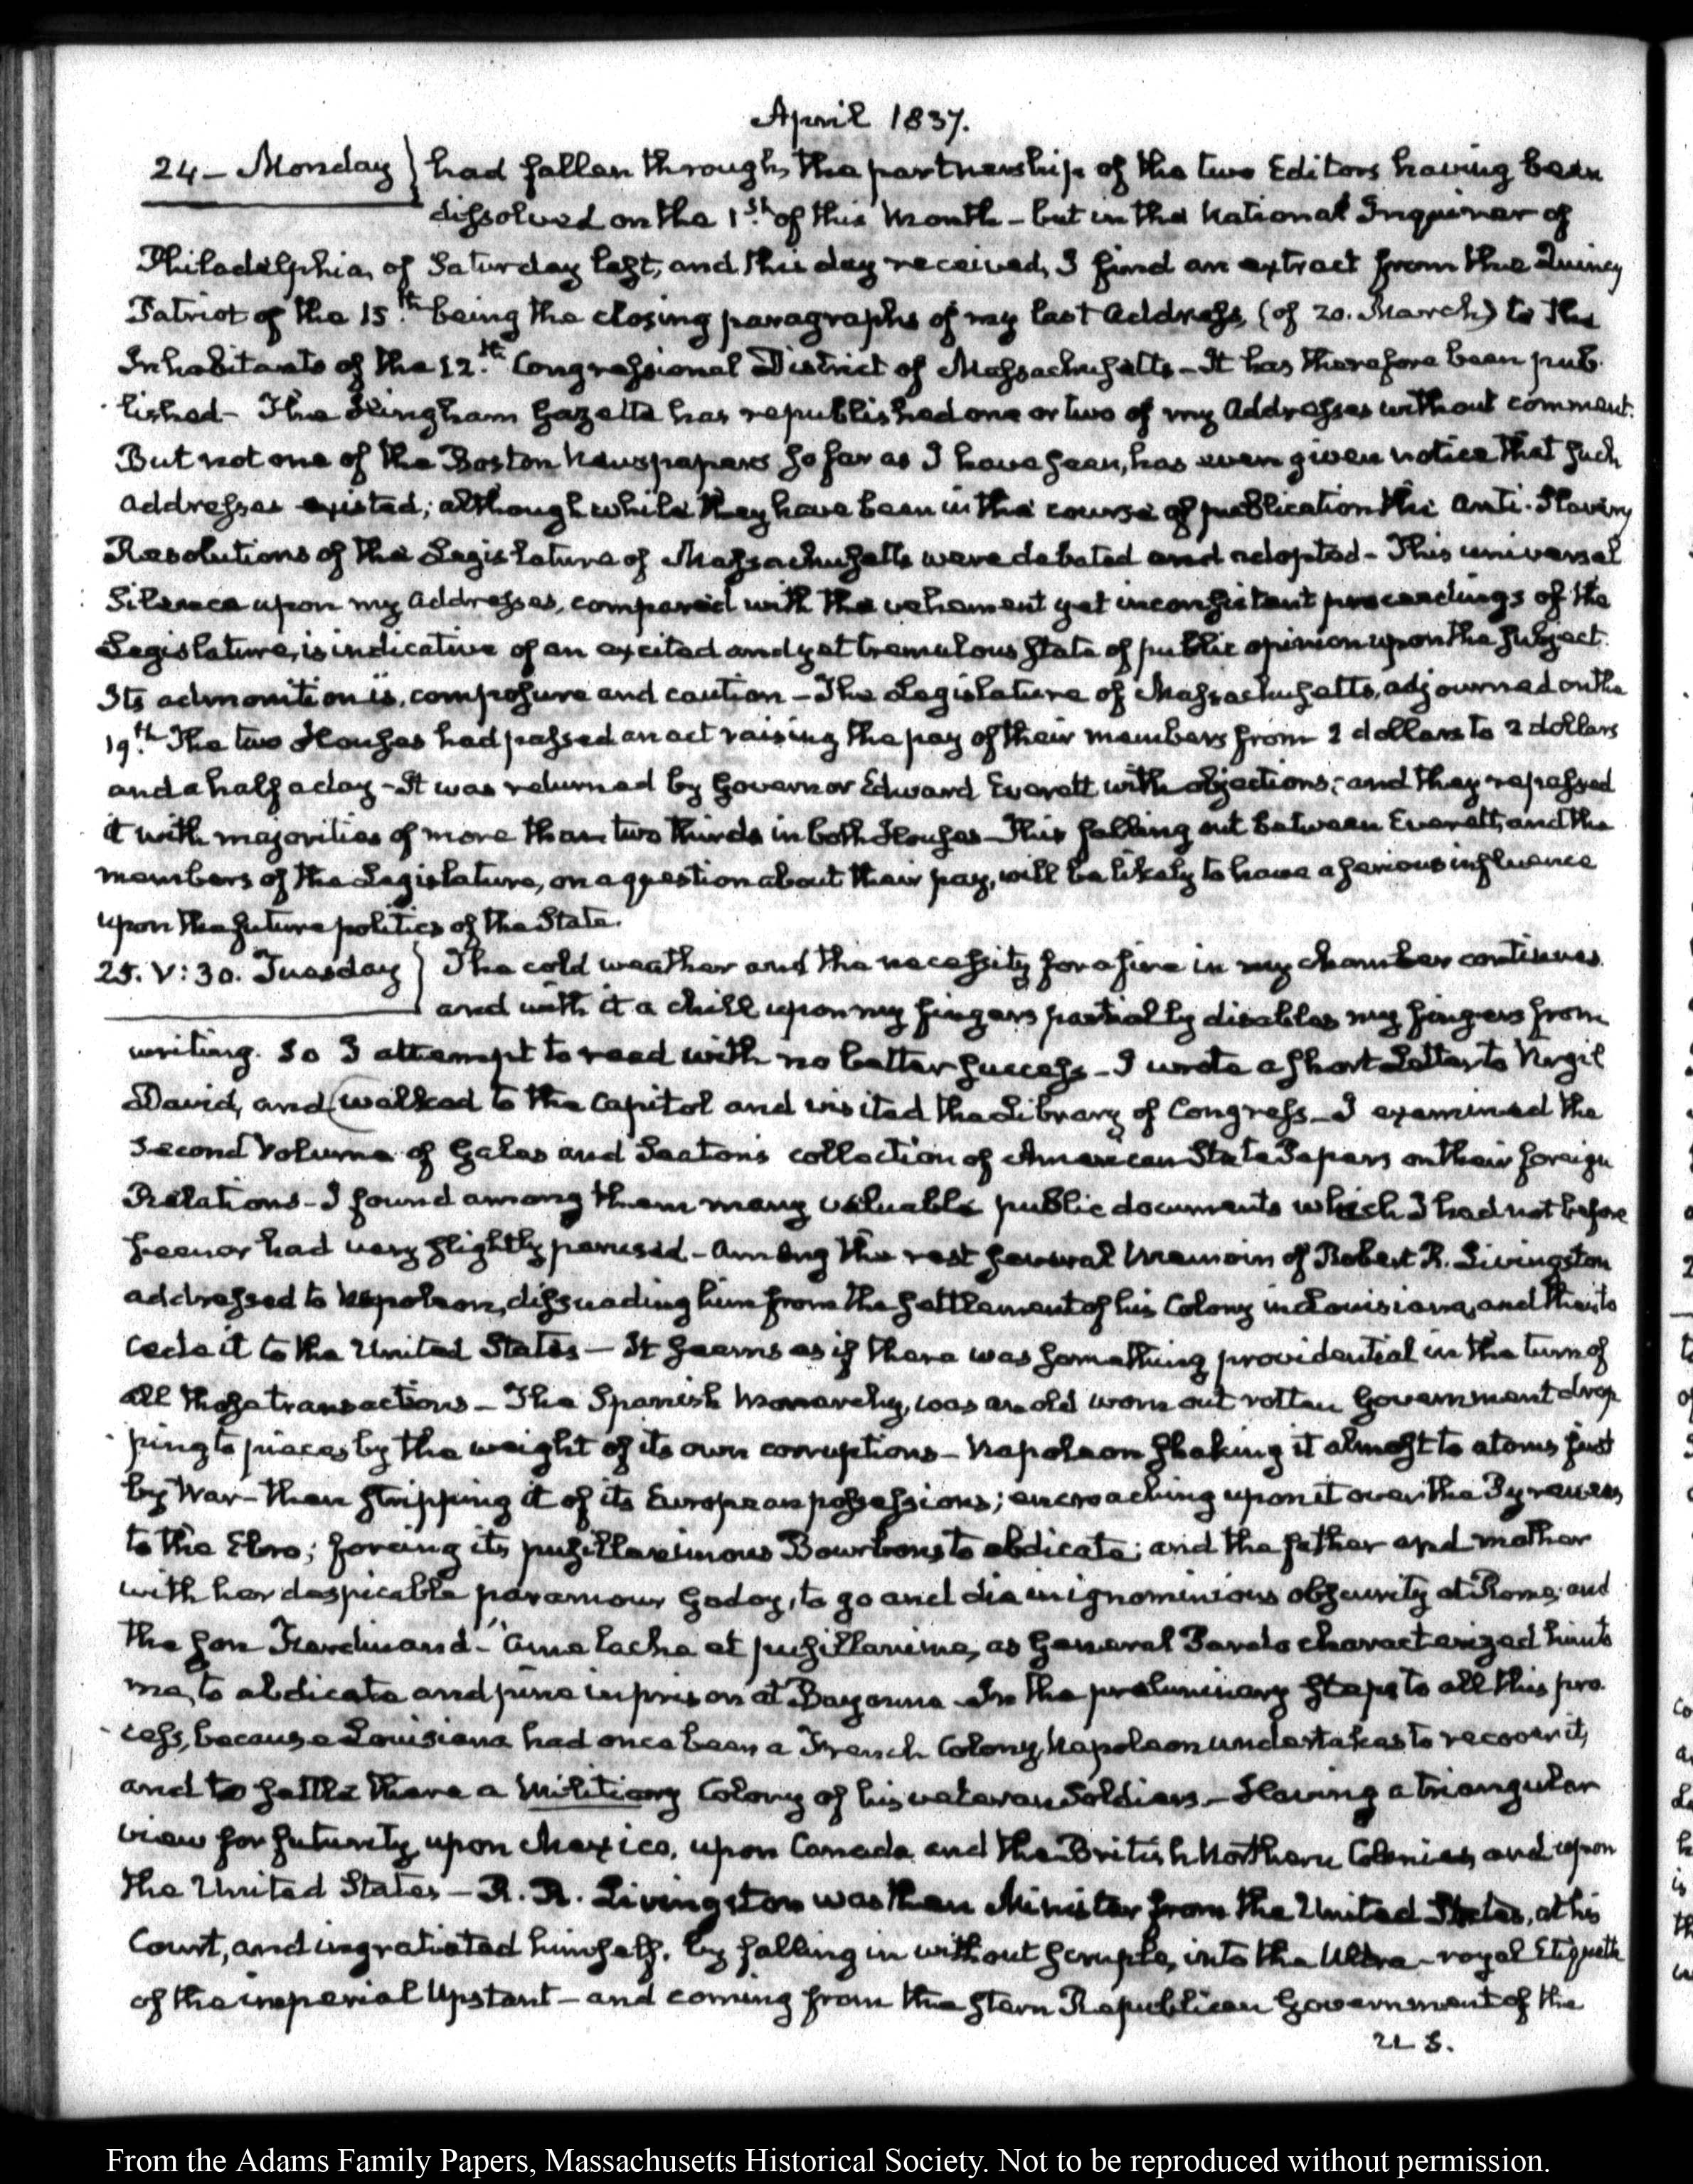 April 1837.
24 – Monday } had fallen through, the partnership of the two Editors having been
dissolved on the 1st. of this Month – but in the National Inquirer of
Philadelphia, of Saturday last, and this day received, I find an extract from the Quincy
Patriot of the 15th. being the closing paragraphs of my last Address, (of 20. March) to the
Inhabitants of the 12th. Congressional District of Massachusetts – It has therefore been pub-
lished – The Hingham Gazette has republished one or two of my Addresses without comment.
But not one of the Boston Newspapers so far as I have seen, has even given notice that such
addresses existed; although while they have been in the course of publication the Anti-Slavery
Resolutions of the Legislature of Massachusetts were debated and adopted – This universal
Silence upon my addresses, compared with the vehement yet inconsistent proceedings of the
Legislature, is indicative of an excited and yet tremulous state of public opinion upon the subject.
Its admonition is, composure and caution – The Legislature of Massachusetts, adjourned on the
19th. The two Houses had passed an act raising the pay of their members from 2 dollars to 2 dollars
and a half a day – It was returned by Governor Edward Everett with objections; and they repassed
it with majorities of more than two thirds in both Houses – This falling out between Everett, and the
members of the Legislature, on a question about their pay, will be likely to have a serious influence
upon the future politics of the State.
25. V: 30. Tuesday } The cold weather and the necessity for a fire in my chamber continues
and with it a chill upon my fingers partially disables my fingers from
writing. So I attempt to read with no better success – I wrote a short Letter to Virgil
David, and (walked to the Capitol and visited the Library of Congress – I examined the
Second Volume of Gales and Seaton's collection of American State Papers on their foreign
Relations – I found among them many valuable public documents which I had not before
seen or had very slightly perused – Among the rest several Memoirs of Robert R. Livingston
addressed to Napoleon, dissuading him from the settlement of his Colony in Louisiana, and then to
cede it to the United States – It seems as if there was something providential in the turn of
all those transactions – The Spanish Monarchy, was an old worn out rotten Government drop-
ping to pieces by the weight of its own corruptions – Napoleon shaking it almost to atoms first
by War – then stripping it of its European possessions; encroaching upon it over the Pyrenees
to the Ebro; forcing its pusillanimous Bourbons to abdicate; and the father and mother
with her despicable paramour Godoy, to go and die in ignominious obscurity at Rome; and
the son Ferdinand – "Ame lache et pusillanime, as General Pardo characterized him to
me, to abdicate and pine in prison at Bayonne – In the preliminary steps to all this pro-
cess, because Louisiana had once been a French Colony, Napoleon undertakes to recover it,
and to settle there a Military Colony of his veteran Soldiers – Having a triangular
view for futurity, upon Mexico, upon Canada and the British Northern Colonies, and upon
the United States – R. R. Livingston was then Minister from the United States, at his
Court, and ingratiated himself, by falling in without scruple, into the Ultra-royal Etiquette
of the imperial Upstart – and coming from the stern Republican Government of the
U S.
From the Adams Family Papers, Massachusetts Historical Society. Not to be reproduced without permission.